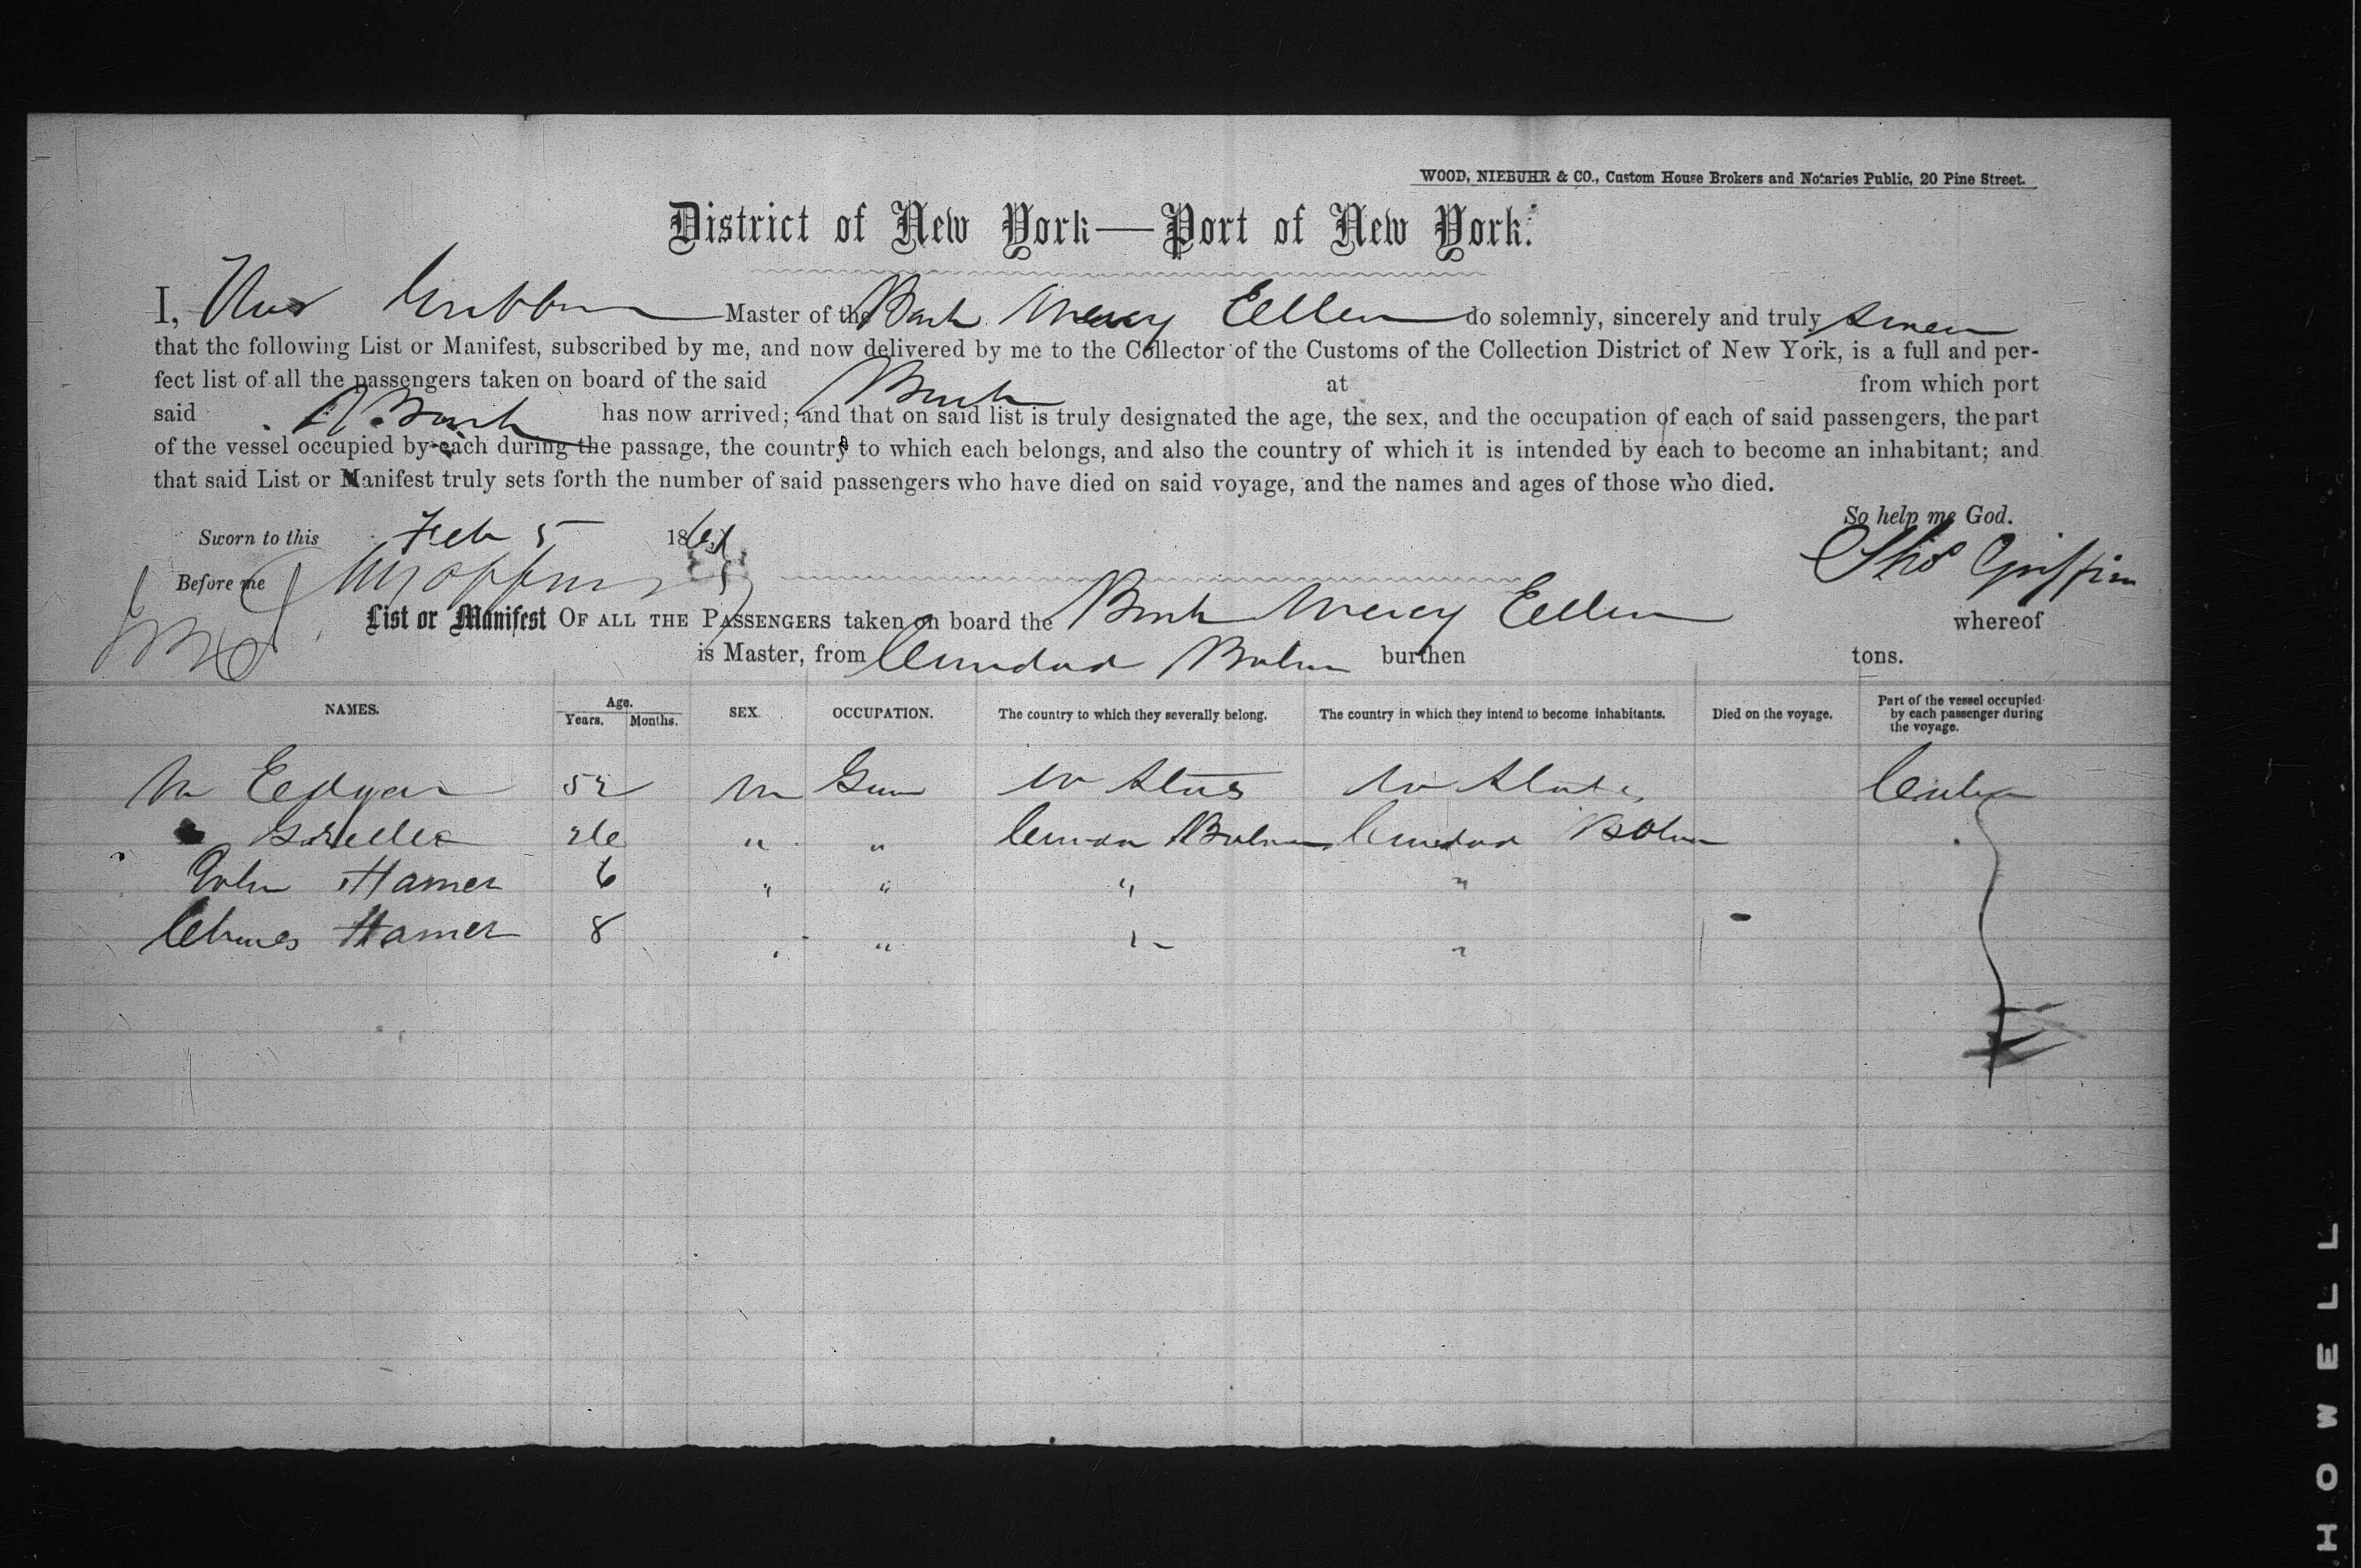 WOOD, NIEBUHR & CO., Custom House Brokers and Notaries Public, 20 Pine Street.
District of New York—Port of New York.
I, Thos Griffin Master of the Bark Mercy Ellen do solemnly, sincerely and truly swear
that the following List or Manifest, subscribed by me, and now delivered by me to the Collector of the Customs of the Collection District of New York, is a full and per-
fect list of all the passengers taken on board of the said Bark at from which port
said Bark has now arrived; and that on said list is truly designated the age, the sex, and the occupation of each of said passengers, the part
of the vessel occupied by each during the passage, the country to which each belongs, and also the country of which it is intended by each to become an inhabitant; and
that said List or Manifest truly sets forth the number of said passengers who have died on said voyage, and the names and ages of those who died.
So help me God.
Sworn to this Feb 5 186
Thos Griffin
Before me
List or Manifest OF ALL THE PASSENGERS taken on board the Bark Mercy Ellen whereof
is Master, from Ciudad Boliv burthen tons.
NAMES. Age. Years. Months. SEX. OCCUPATION. The country to which they severally belong. The country in which they intend to become inhabitants. Died on the voyage. Part of the vessel occupied by each passenger during the voyage.
M Edgar 52 M U States U States Cabin
26 " " Ciudad Boliv Ciudad Boliv
John Hamer 6 " " " "
Hamer 8 " "
HOWELL